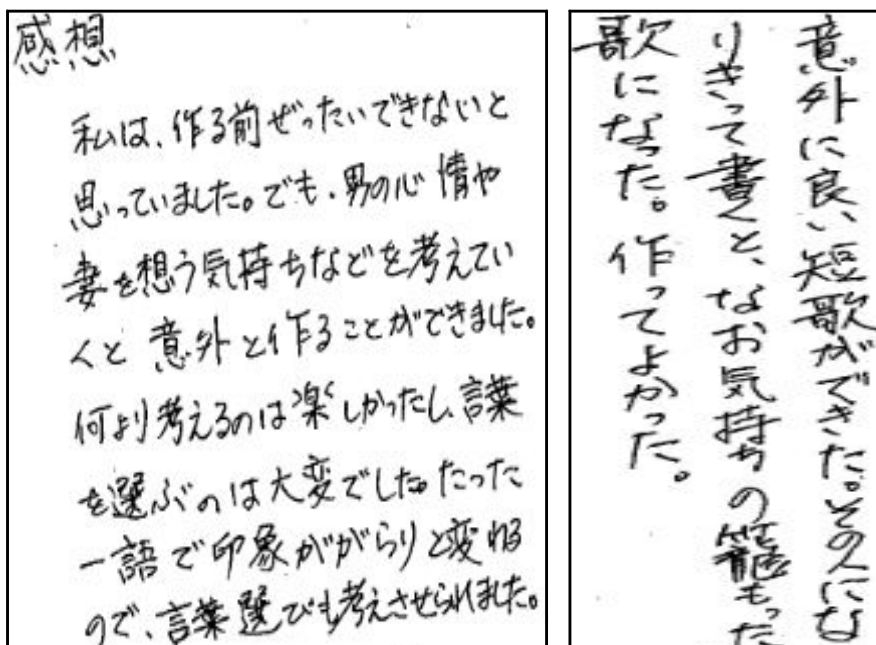 感想
私は、作る前ぜったいできないと
思っていました。でも、男の心情や
妻を想う気持ちなどを考えてい
くと意外と作ることができました。
何より考えるのは楽しかったし、言葉
を選ぶのは大変でした。たった
一語で印象ががらりと変わる
ので、言葉選びも考えさせられました。
意外に良い短歌ができた。その人にな
りきって書くと、なお気持ちの籠もった
歌になった。作ってよかった。